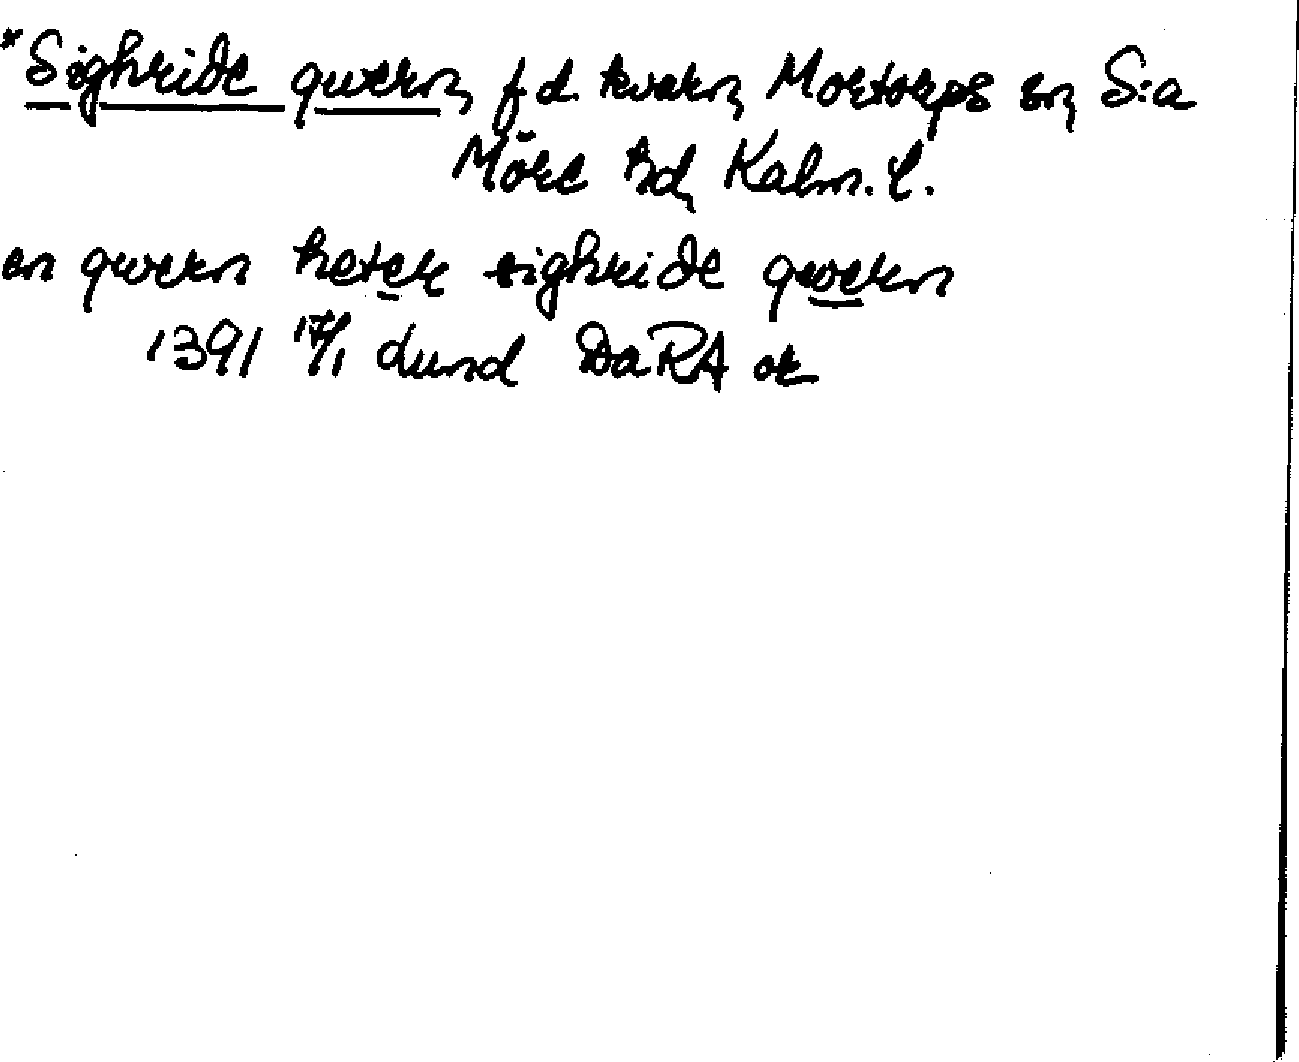 *Sighride qwern, f d. kvarn, Mortorps sn, S:a
Möre hd, Kalm. l.
en qwern heter sighride qwern
1391 17/1 Lund DaRA or